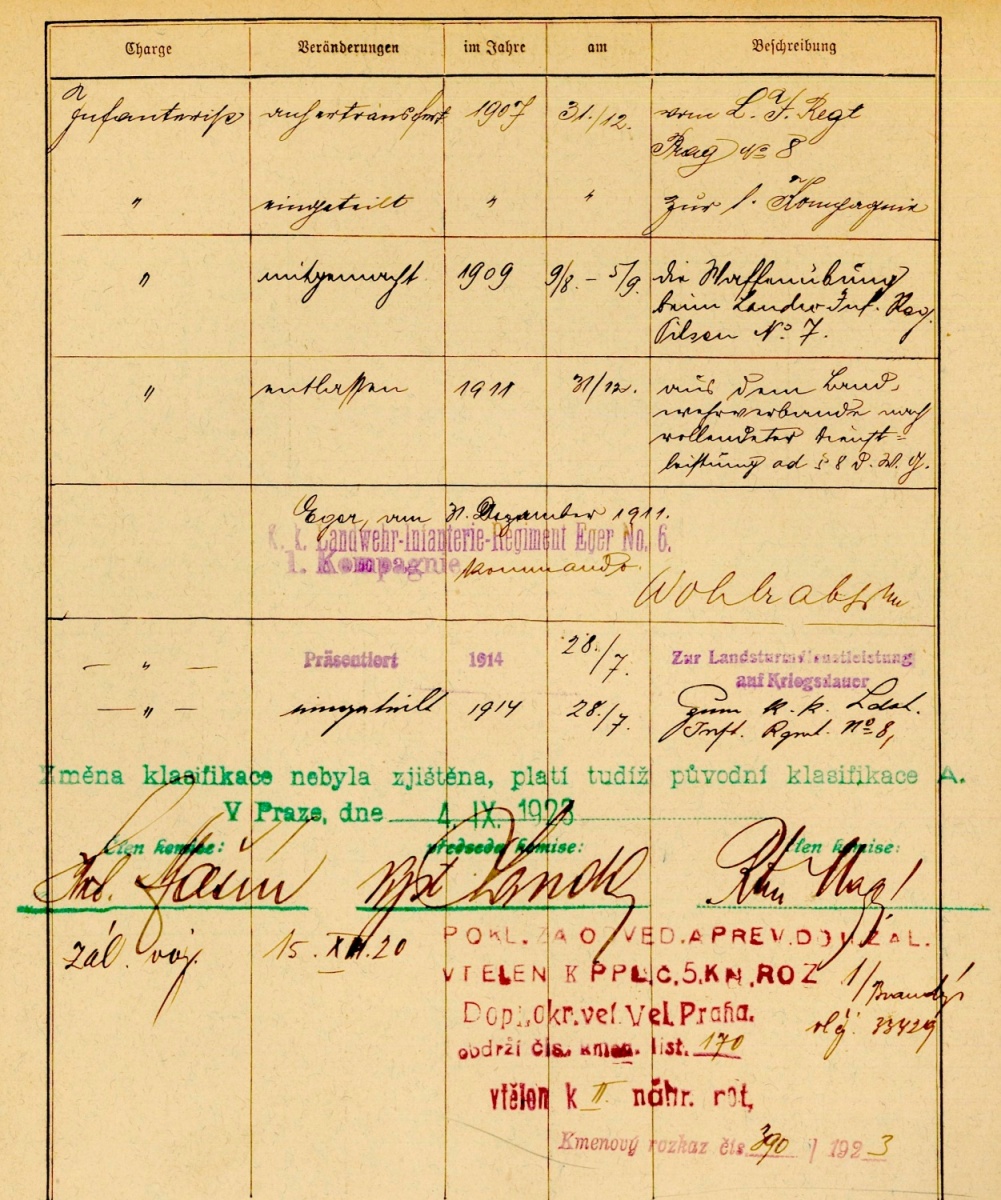 Charge Veränderungen im Jahre am Beschreibung
Infanterist anhertransfert 1907 31./12. vom L. I. Regt
Prag No 8
" eingeteilt " " zur 1. Kompagnie
" mitgemacht 1909 9/8. – 5/9. die Waffenübung
beim Landw. Inf. Reg.
Pilsen No. 7.
" entlassen 1911 31/12. aus dem Land-
wehrverbande nach
vollendeter Dienst-
leistung ad § 8 d. W. G.
Eger, am 31. Dezember 1911.
K. k. Landwehr-Infanterie-Regiment Eger No. 6.
1. Kompagnie kommando.
— " — Präsentiert 1914 28./7. Zur Landsturmdienstleistung
auf Kriegsdauer
— " — eingeteilt 1914 28./7. zum k. k. Ldst.
Inft. Rgmt. No 8,
Změna klasifikace nebyla zjištěna, platí tudíž původní klasifikace A.
V Praze, dne 4. IX. 1923
člen komise: předseda komise: člen komise:
zál. voj. 15. XII. 20
POKL. ZA ODVED. A PREV. DO ZAL.
VTELEN K PPL. Č. 5, KN. ROZ 1/
Dopl. okr. vel. Vel. Praha. 33429
obdrží čís. kmen. list. 170
vtělen k II. náhr. rot,
Kmenový rozkaz čís. 390 / 1923